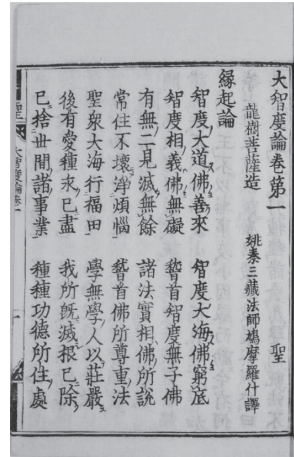 大智度論卷第一　聖
龍樹菩薩造　姚秦三藏法師鳩摩羅什譯
緣起論
智度大道佛善來　智度大海佛窮底
智度相義佛無礙　稽首智度無子佛
有無二見滅無餘　諸法實相佛所說
常住不壞淨煩惱　稽首佛所尊重法
聖衆大海行福田　學無學人以莊嚴
後有愛種永已盡　我所旣滅根已除
已捨世間諸事業　種種功德所住處
大智度論卷一